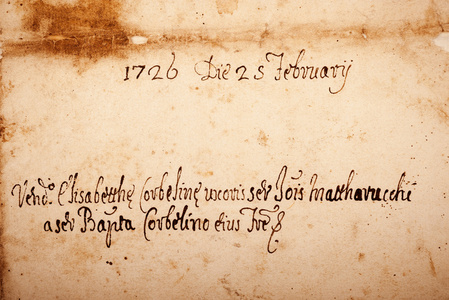 1726 Die 25 February
Vend.º Elisabetthę Corbelinę uxoris ser Jois Mattharucchi
a ser Bapta Corbelino eius Fre